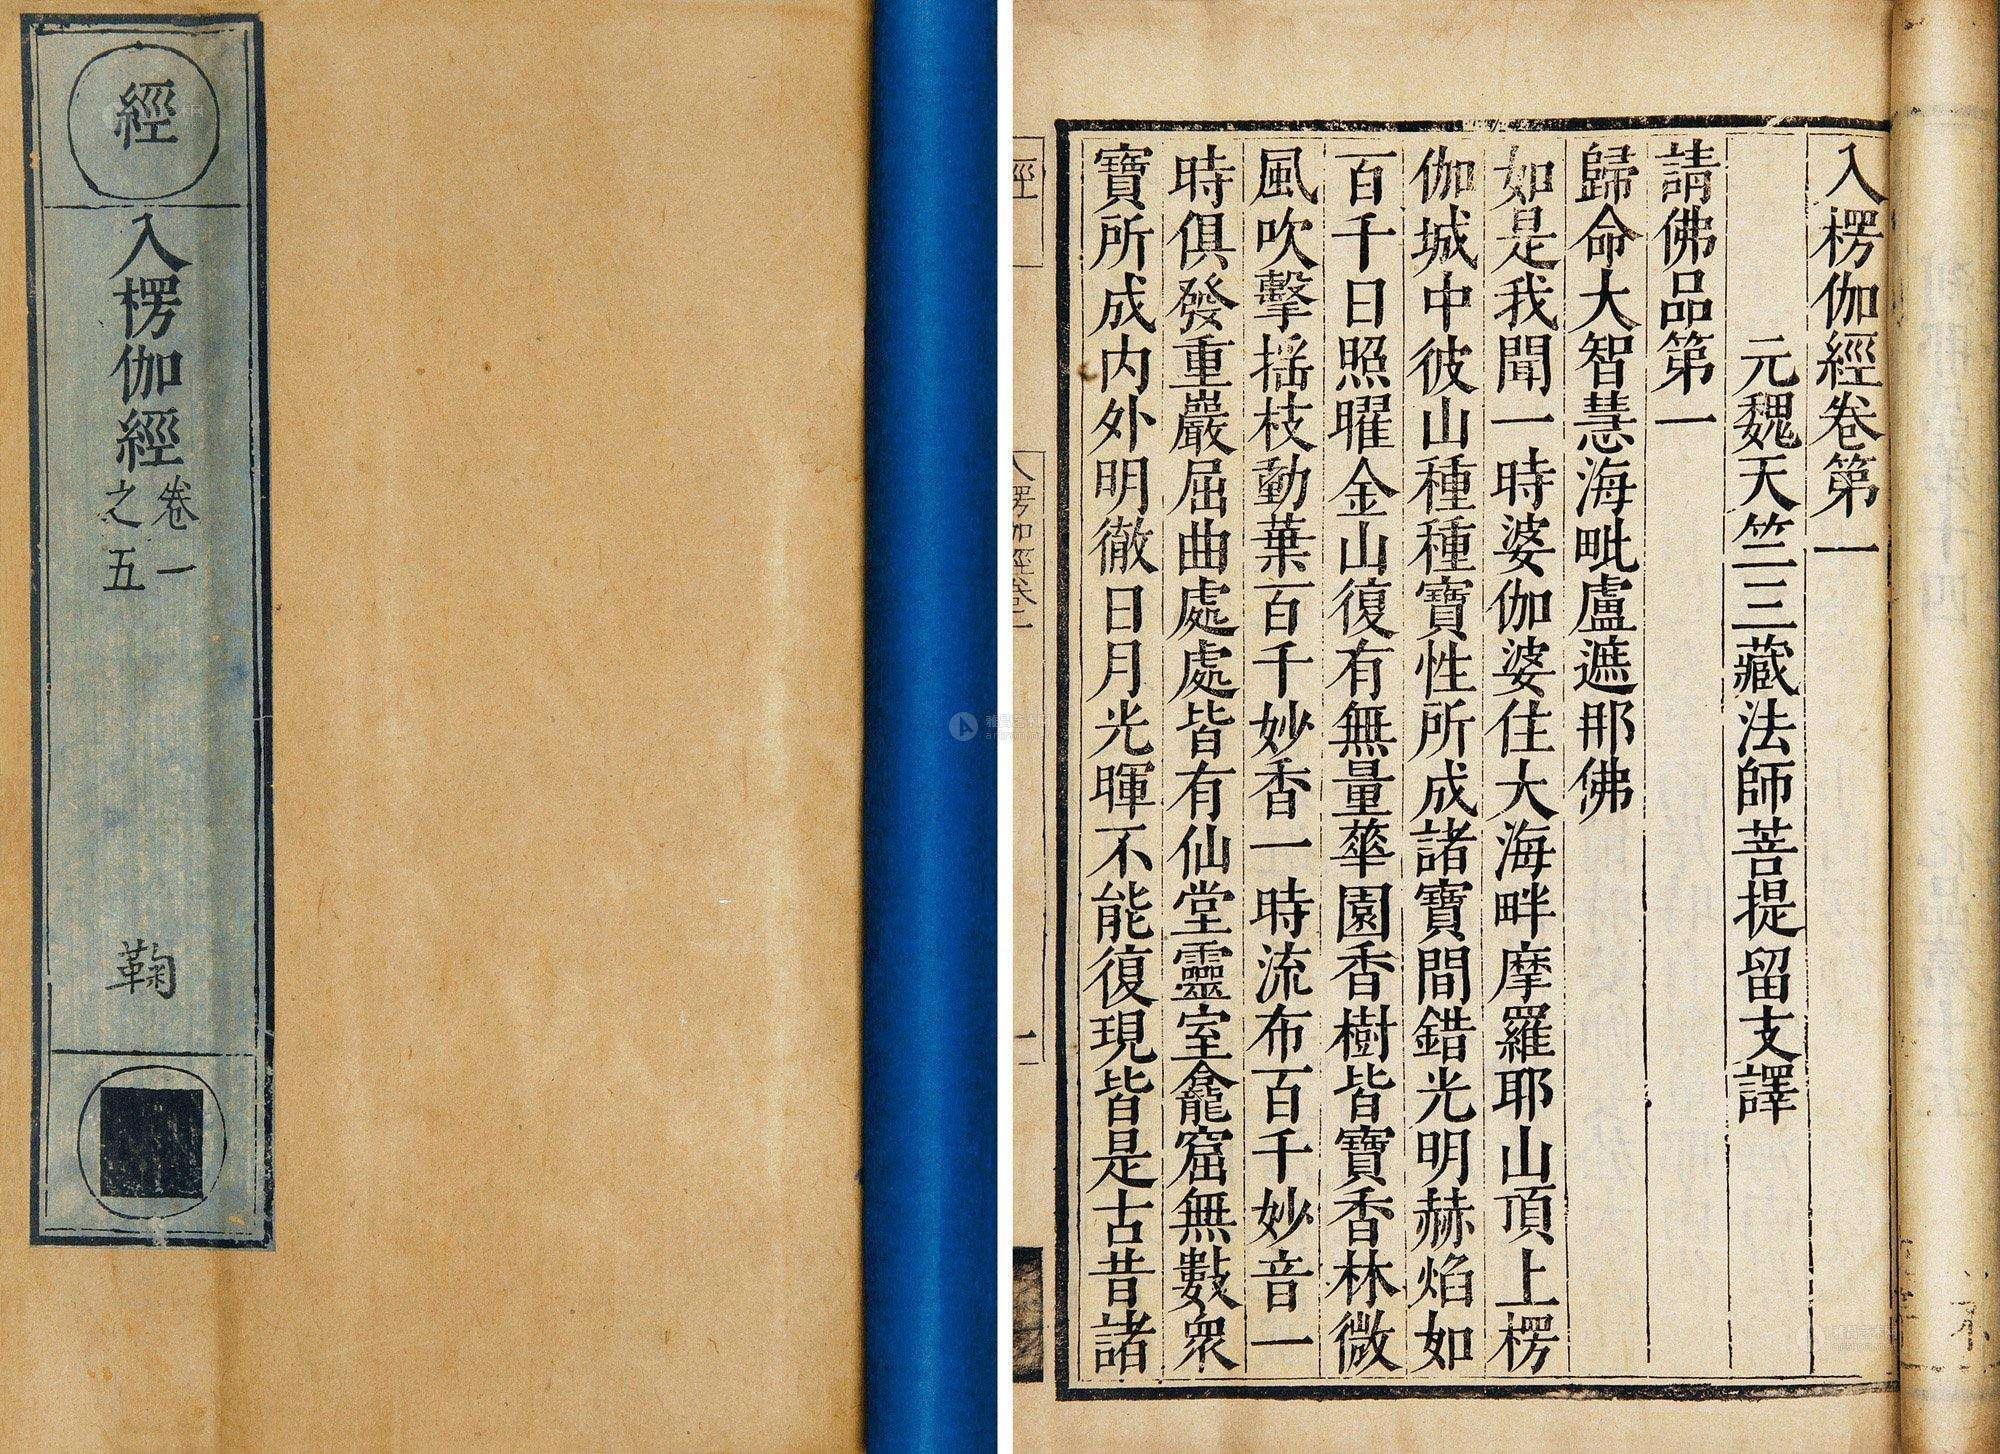 經
入楞伽經
卷一
之五
鞠
入楞伽經卷第一
元魏天竺三藏法師菩提留支譯
請佛品第一
歸命大智慧海毗盧遮那佛
如是我聞一時婆伽婆住大海畔摩羅耶山頂上楞
伽城中彼山種種寶性所成諸寶間錯光明赫焰如
百千日照曜金山復有無量華園香樹皆寶香林微
風吹擊搖枝動葉百千妙香一時流布百千妙音一
時俱發重巖屈曲處處皆有仙堂靈室龕窟無數眾
寶所成内外明徹日月光暉不能復現皆是古昔諸
經
入楞伽經卷一
一